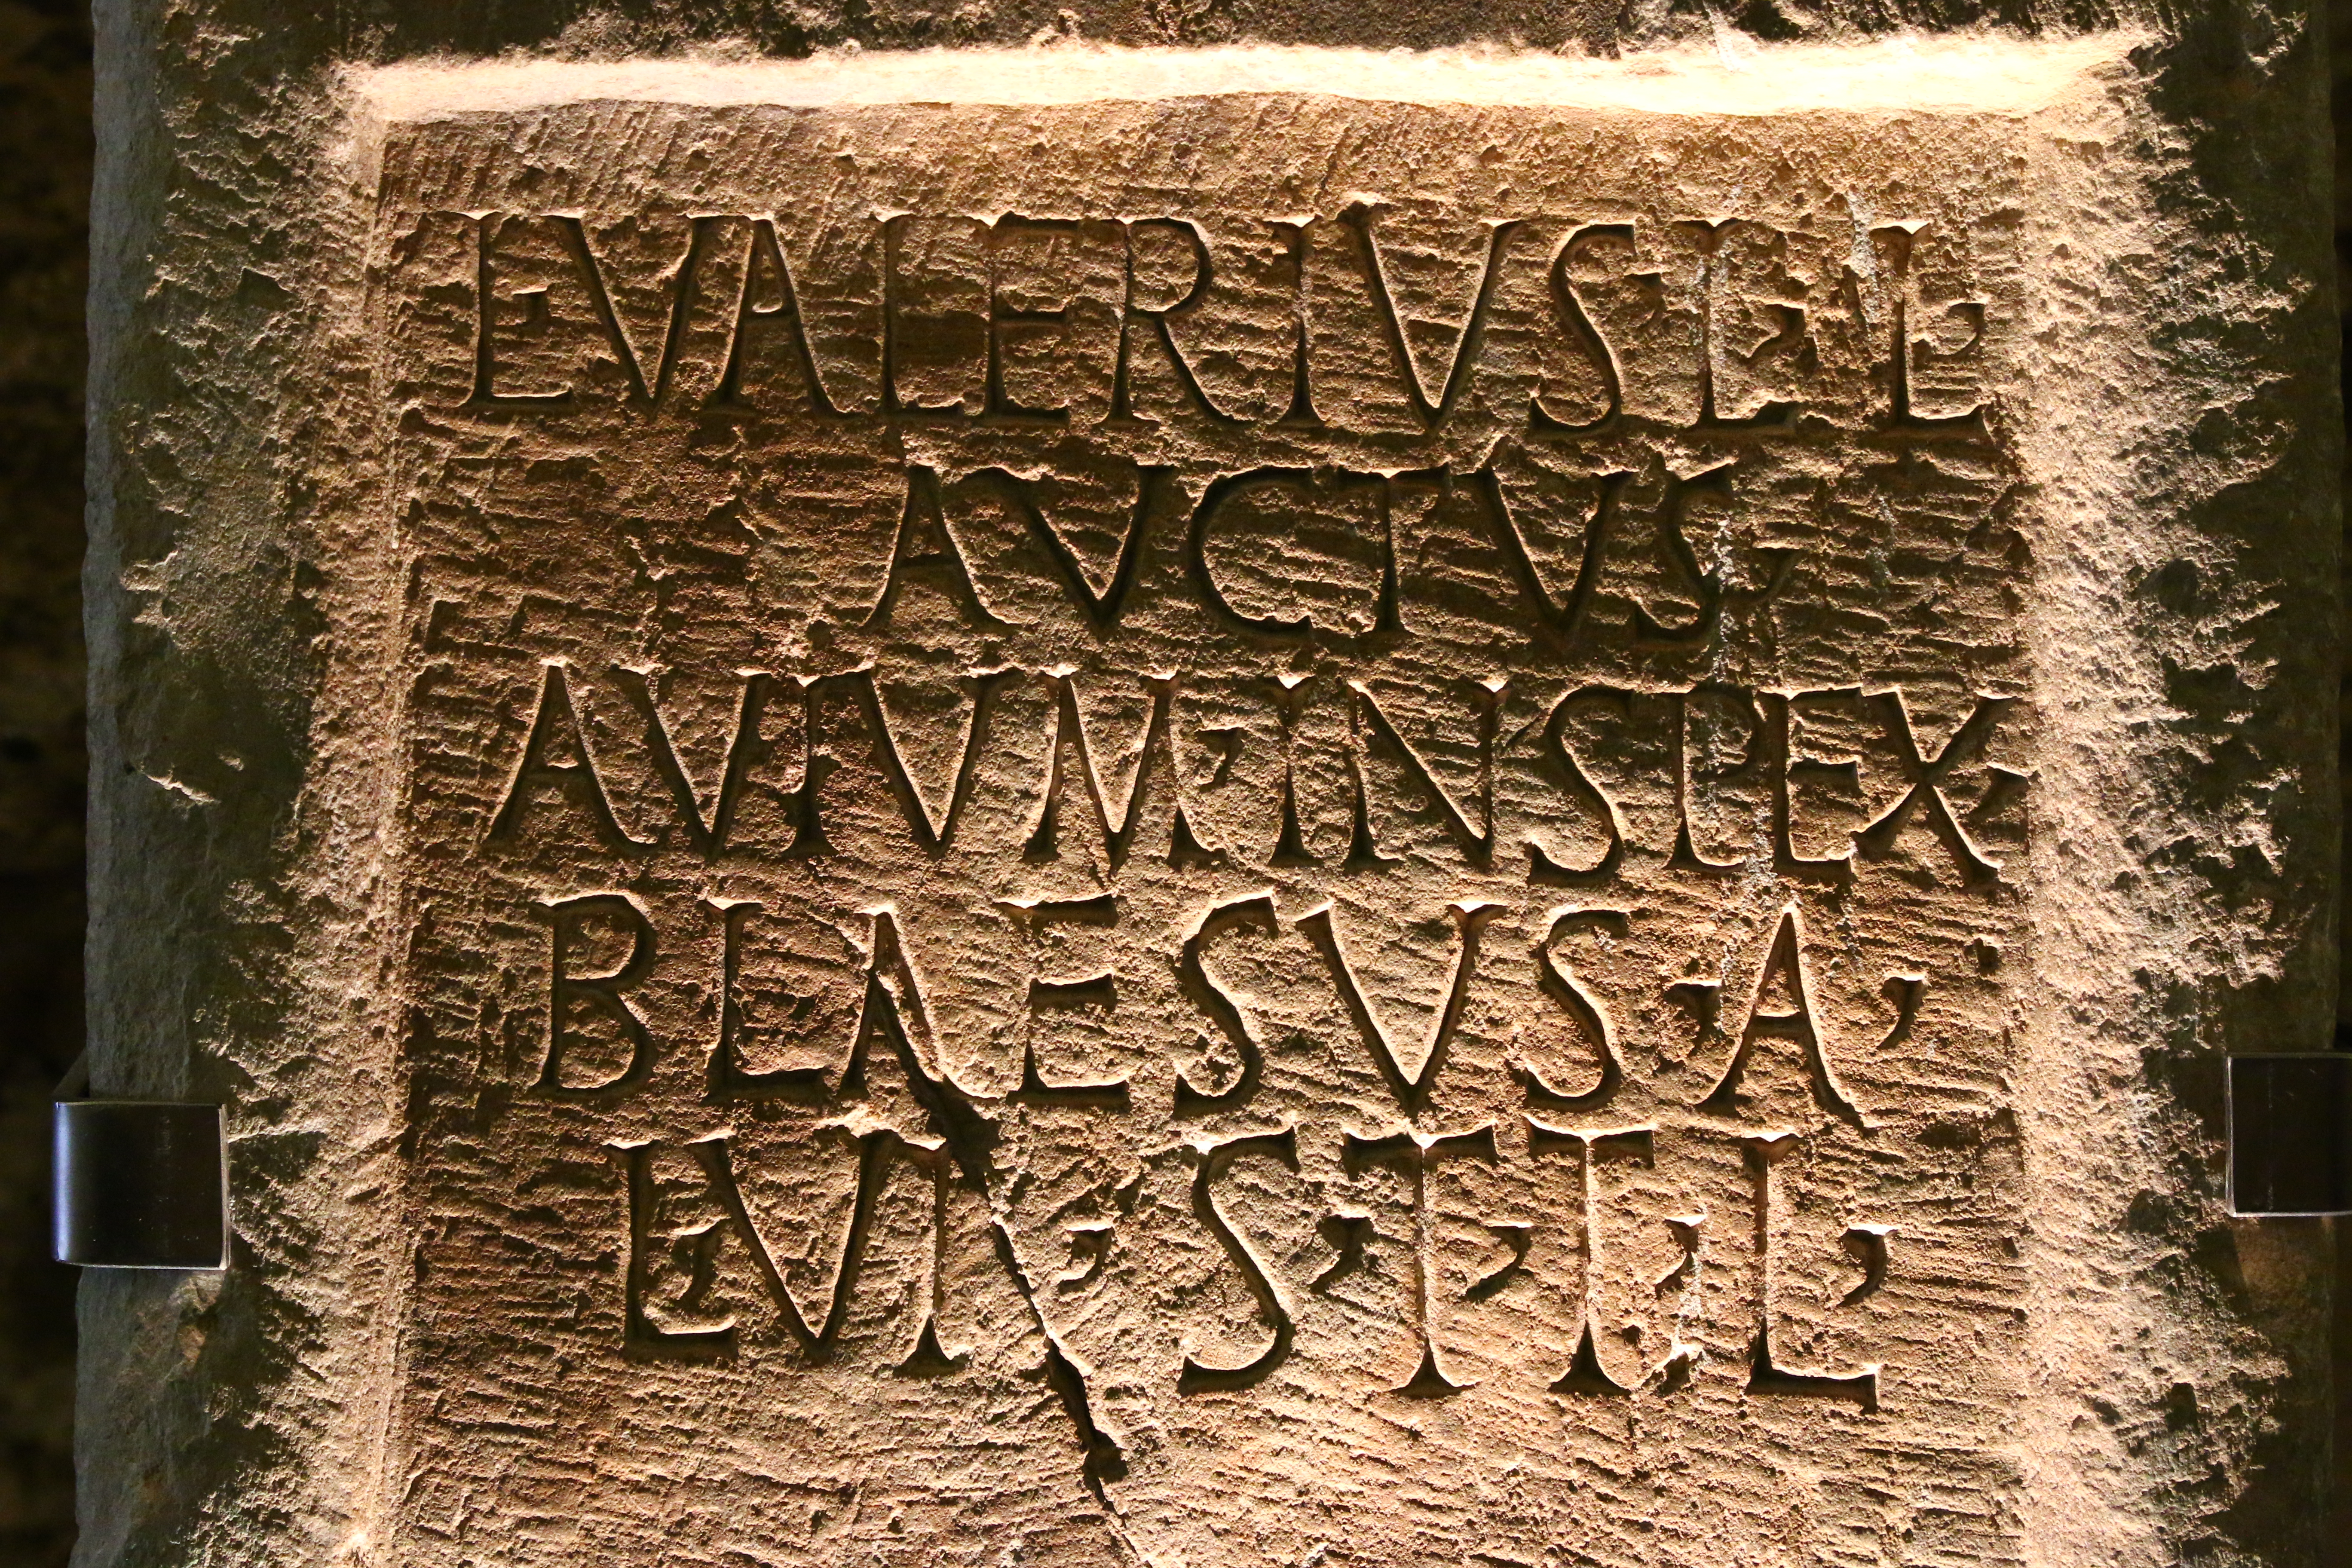 L·VALERIVS·L·L·
AVCTVS·
AVIVM·INSPEX·
BLAESVS·A·
L·VI·S·T·T·L·